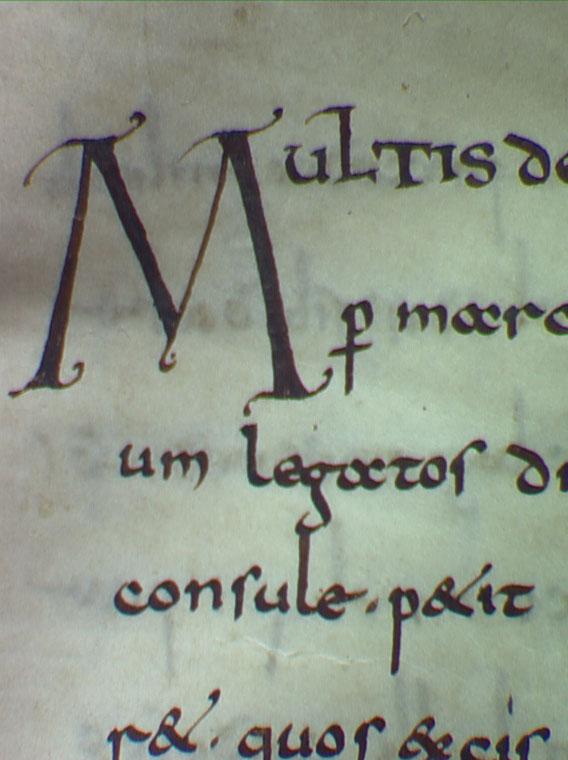 MULTIS de
ꝑ marc
um legatos di
consule. p&it
r&. quos